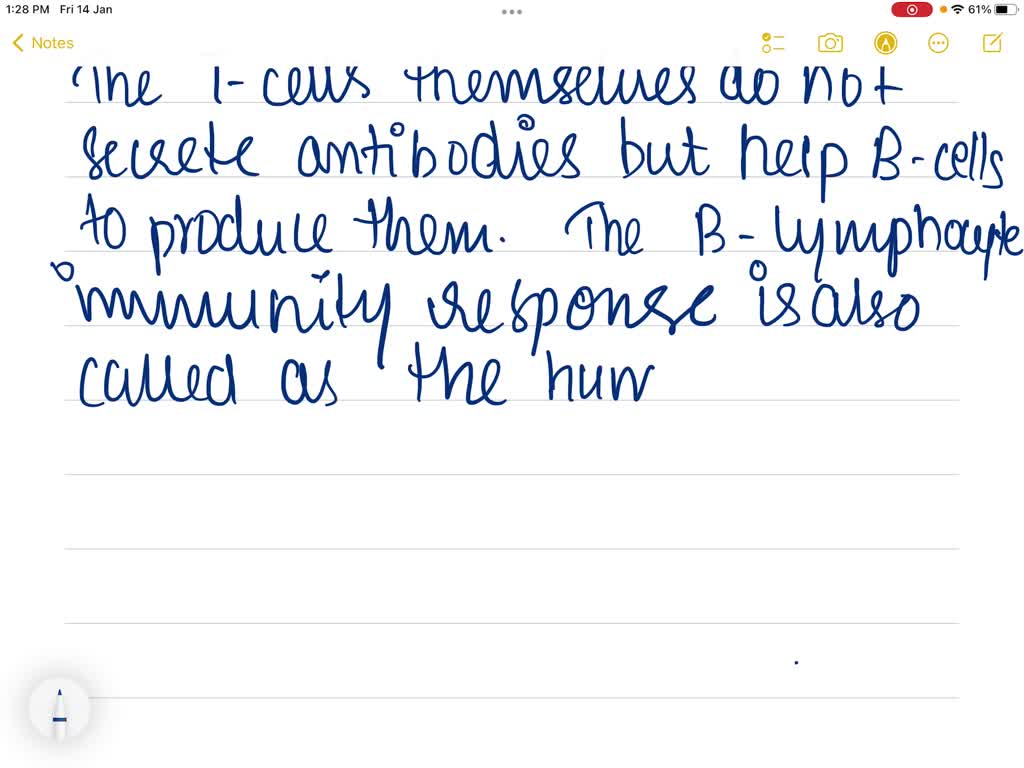 1:28 PM Fri 14 Jan
61%
Notes
The T-cells themselves do not
secrete antibodies but help B-cells
to produce them. The B-lymphocyte
immunity response is also
called as the hum